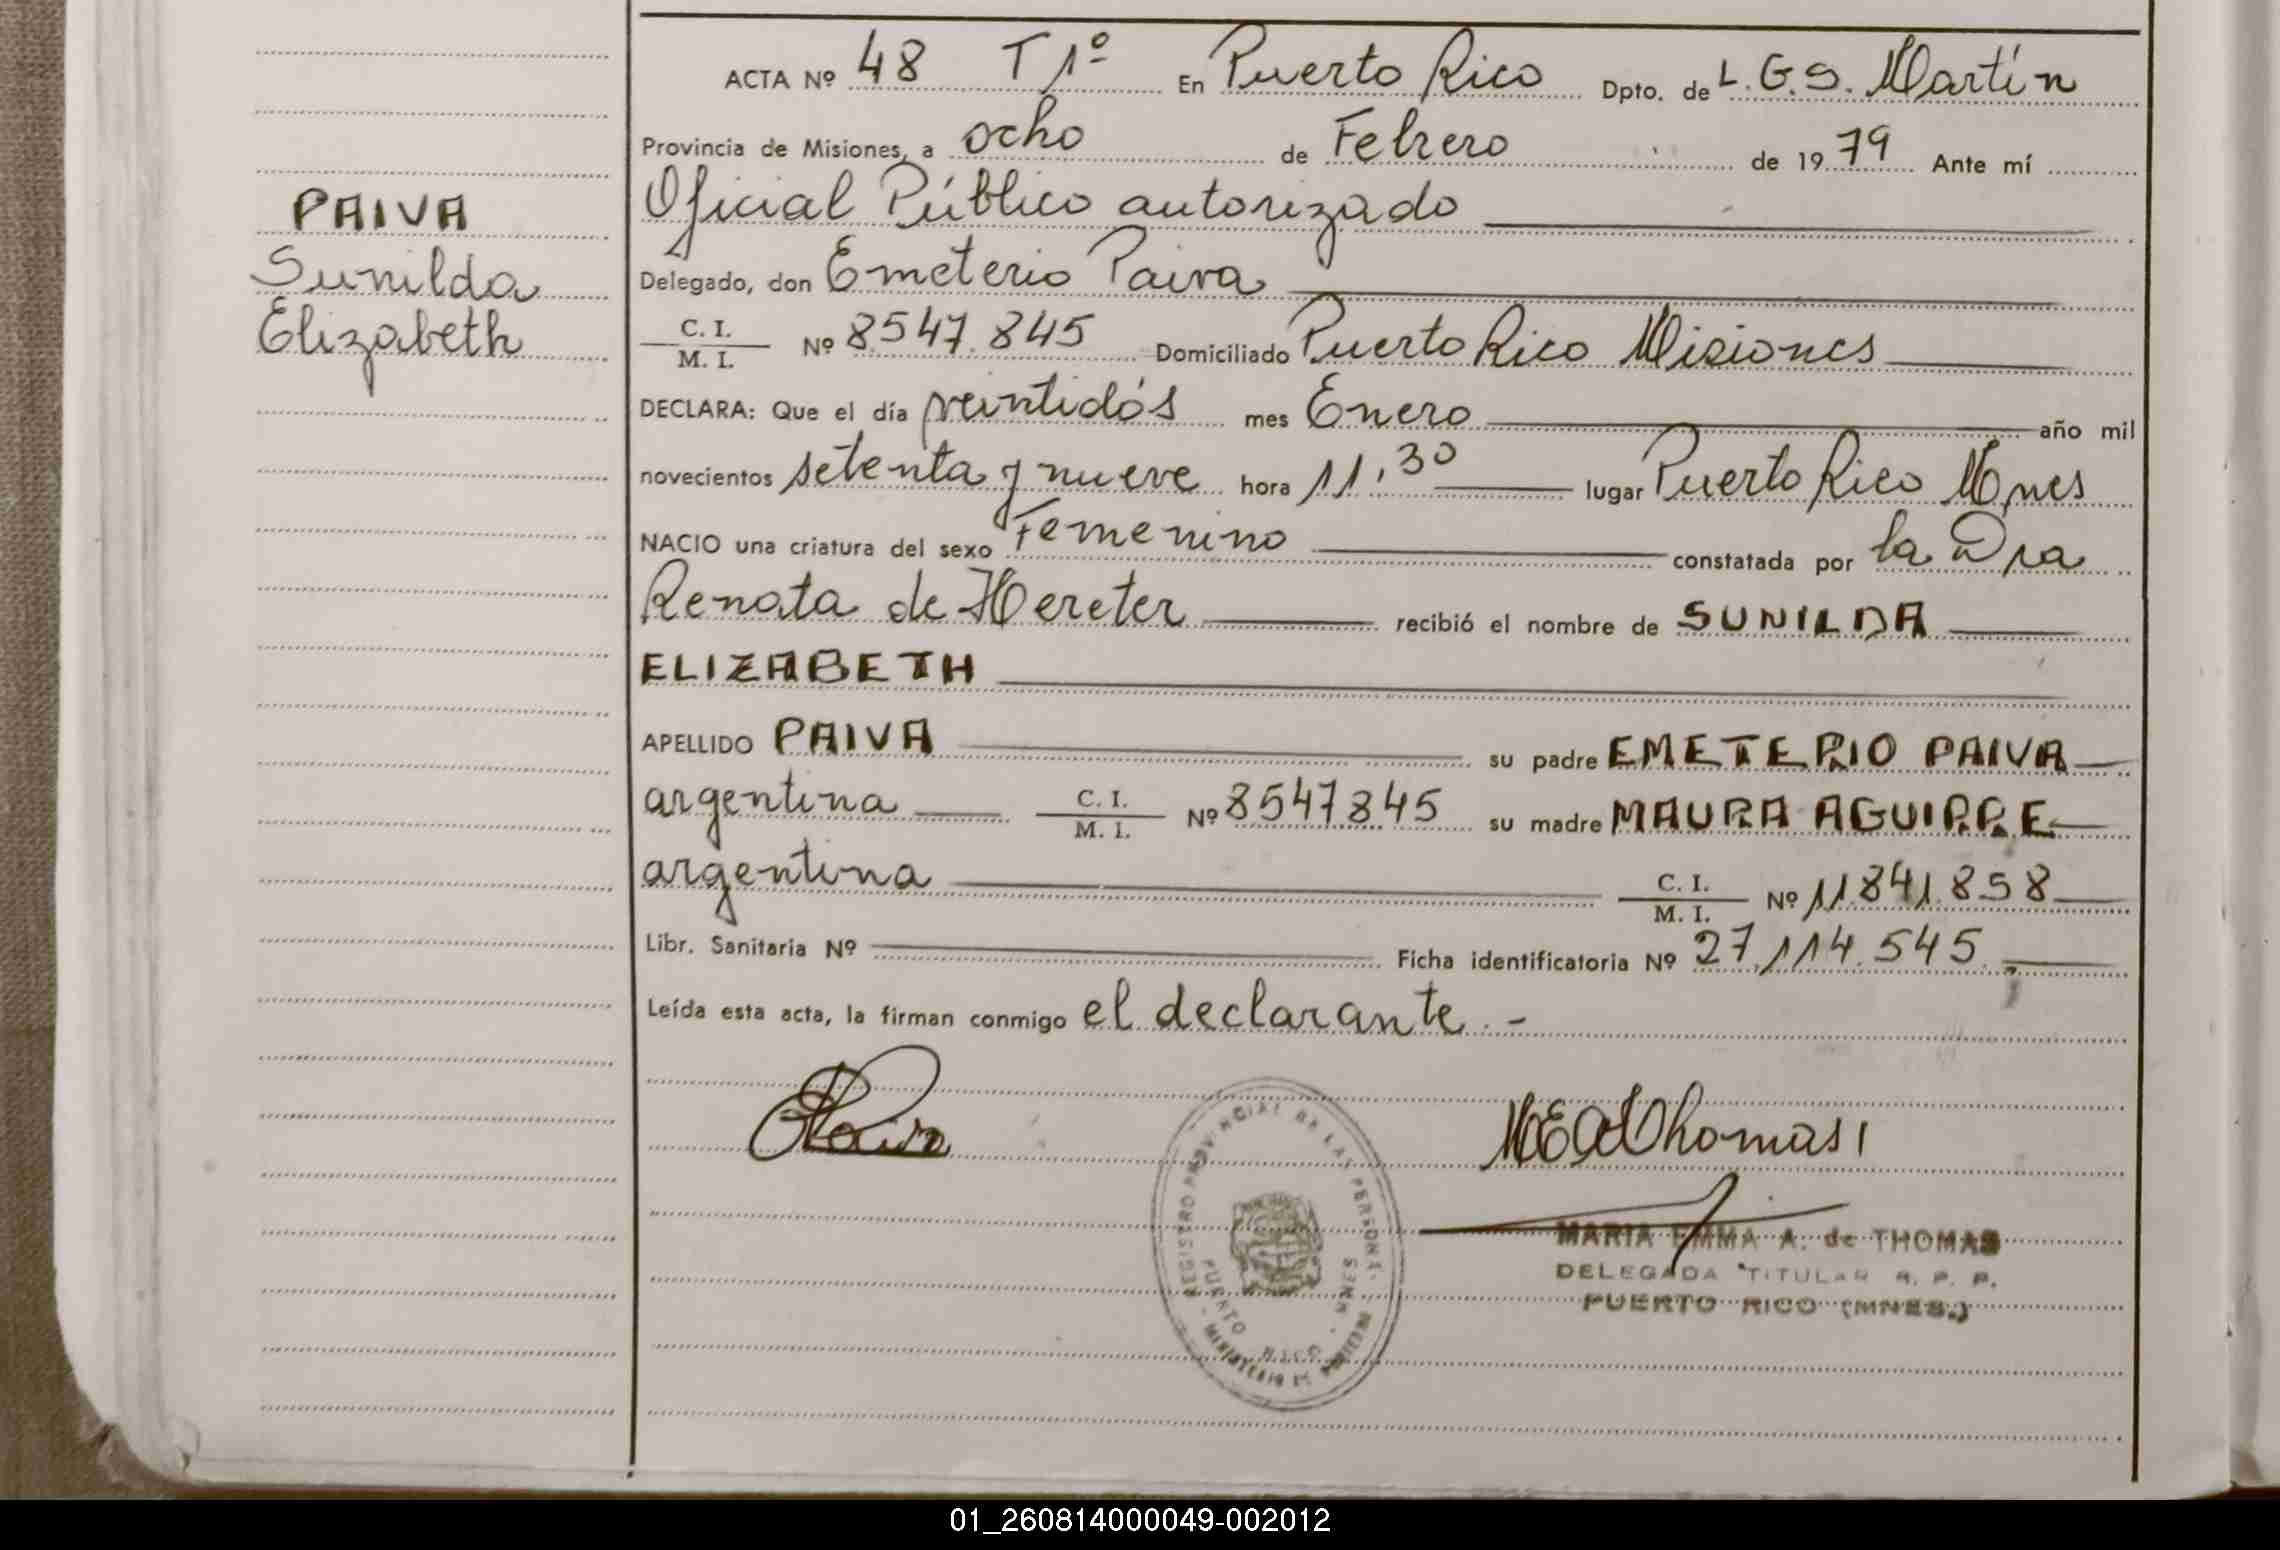 ACTA Nº 48 T 1º En Puerto Rico Dpto. de L.G.S. Martín
Provincia de Misiones, a ocho de Febrero de 1979 Ante mí
Oficial Público autorizado
Delegado, don Emeterio Paiva
C. I.
M. I. Nº 8547.845 Domiciliado Puerto Rico Misiones
DECLARA: Que el día veintidós mes Enero año mil
novecientos setenta y nueve hora 11,30 lugar Puerto Rico Mnes
NACIO una criatura del sexo Femenino constatada por la Dra
Renata de Hereter recibió el nombre de SUNILDA
ELIZABETH
APELLIDO PAIVA su padre EMETERIO PAIVA
argentina C. I.
M. I. Nº 8547845 su madre MAURA AGUIRRE
argentina C. I.
M. I. Nº 11.841.858
Libr. Sanitaria Nº Ficha identificatoria Nº 27.114.545.
Leída esta acta, la firman conmigo el declarante.-
PAIVA
Sunilda
Elizabeth
Paiva
MEAdThomas
REGISTRO PROVINCIAL DE LAS PERSONAS
PUERTO RICO
MINISTERIO DE GOBIERNO
MARIA EMMA A. de THOMAS
DELEGADA TITULAR R. P. P.
PUERTO RICO (MNES.)
01_260814000049-002012